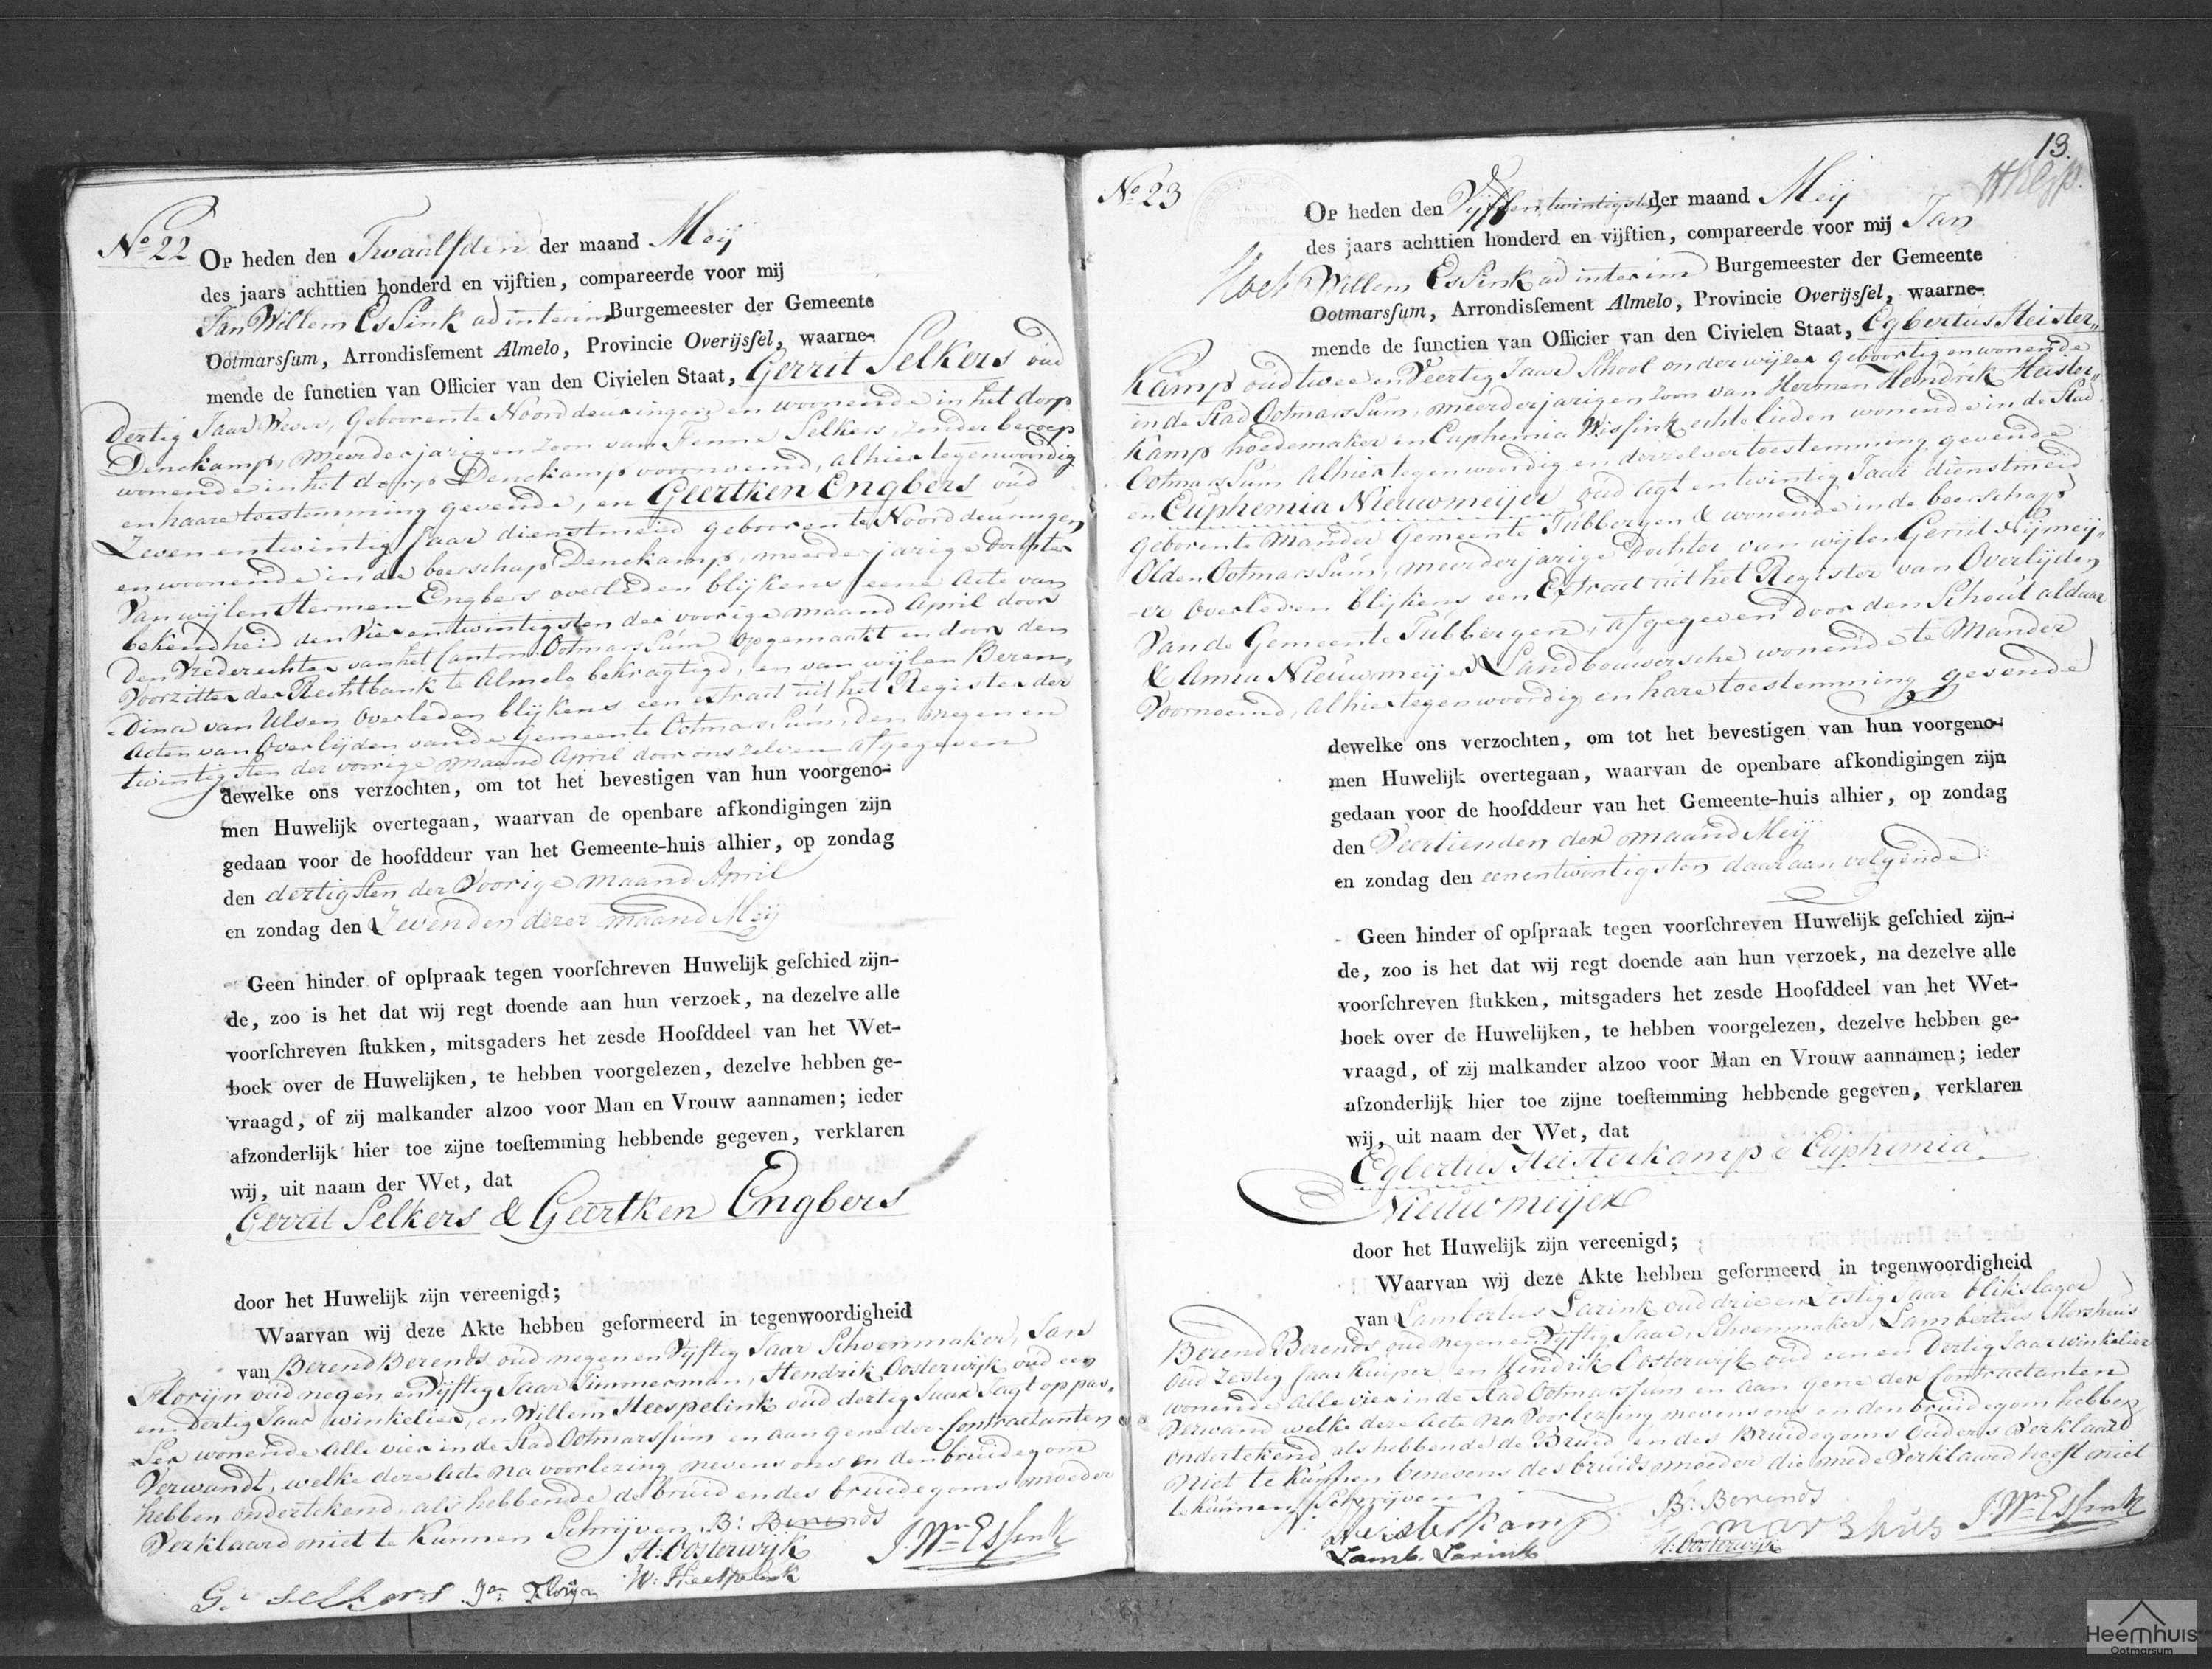 No 22
Op heden den Twaalfden der maand Meij
des jaars achttien honderd en vijftien, compareerde voor mij
Jan Willem Essink ad interim Burgemeester der Gemeente
Ootmarsſum, Arrondisſement Almelo, Provincie Overijsſel, waarne-
mende de functien van Officier van den Civielen Staat, Gerrit Selkers oud
dertig Jaar Wever, Geboorente Noorddeuringen en woonende in het dorp
Denekamp, meerderjarigen zoon van Fenne Selkers, zonder beroep
wonende in het dorp Denekamp voornoemd, alhier tegenwoordig
en haare toestemming gevende, en Geertken Engbers oud
Zevenentwintig Jaar dienstmeid gebooren te Noorddeuringen
en woonende in de boerschap Denekamp, meerderjarige dochter
van wijlen Hermen Engbers overleden blijkens eene Acte van
bekendheid den Vierentwintigsten der voorige maand April door
den Vrederechter van het Canton Ootmarssum opgemaakt en door den
Voorzitter der Rechtbank te Almelo bekragtigd, en van wijlen Beren„
dina van Ulsen Overleden blijkens een extract uit het Register der
Acten van Overlijden van de Gemeente Ootmarssum, den negen en
twintigsten der voorige maand April door ons zelven afgegeven
dewelke ons verzochten, om tot het bevestigen van hun voorgeno-
men Huwelijk overtegaan, waarvan de openbare afkondigingen zijn
gedaan voor de hoofddeur van het Gemeente-huis alhier, op zondag
den dertigsten der Voorige maand April
en zondag den Zevenden dezer maand Meij
Geen hinder of opſpraak tegen voorſchreven Huwelijk geſchied zijn-
de, zoo is het dat wij regt doende aan hun verzoek, na dezelve alle
voorſchreven ſtukken, mitsgaders het zesde Hoofddeel van het Wet-
boek over de Huwelijken, te hebben voorgelezen, dezelve hebben ge-
vraagd, of zij malkander alzoo voor Man en Vrouw aannamen; ieder
afzonderlijk hier toe zijne toeſtemming hebbende gegeven, verklaren
wij, uit naam der Wet, dat
Gerrit Selkers & Geertken Engbers
door het Huwelijk zijn vereenigd;
Waarvan wij deze Akte hebben geformeerd in tegenwoordigheid
van Berend Berends oud negen en Vijftig Jaar Schoenmaker, Jan
Florijn oud negen en Vijftig Jaar Timmerman, Hendrik Oosterwijk oud een
en Dertig Jaar winkelier, en Willem Heespelink oud dertig Jaar Jagtoppas„
ser wonende Alle vier in de Stad Ootmarsſum en aan gene der Contractanten
Verwandt, welke deze Acte na voorlezing nevens ons en den bruidegom
hebben ondertekend, als hebbende de bruid en des bruidegoms moeder
Verklaard niet te kunnen Schrijven. B: Berends
H: Oosterwijk J. Wm Essink
G: selkers Jan Florijn W: Heespelink
13.
No 23
Op heden den Vijfentwintigsten der maand Meij
des jaars achttien honderd en vijftien, compareerde voor mij Jan
Willem Essink ad interim Burgemeester der Gemeente
Ootmarsſum, Arrondisſement Almelo, Provincie Overijsſel, waarne-
mende de functien van Officier van den Civielen Staat, Egbertus Heister„
kamp oud twee en Veertig Jaar School onderwijzer geboortig en wonende
in de Stad Ootmarssum, meerderjarigen zoon van Hermen Hendrik Heister„
kamp hoedemaker en Euphemia Wissink echtelieden wonende in de Stad
Ootmarssum Alhier tegenwoordig en derzelver toestemming gevende
en Euphemia Nieuwmeijer oud agt en twintig Jaar dienstmeid
geboren te Mander Gemeente Tubbergen & wonende in de boerschap
Olden Ootmarssum, meerderjarige Dochter van wijlen Gerrit Nijmeij„
er Overleden blijkens een Extract uit het Register van Overlijden
Van de Gemeente Tubbergen, afgegeven door den Schout aldaar
& Anna Nieuwmeijer Landbouwersche wonende te Mander
Voornoemd, alhier tegenwoordig en hare toestemming gevende
dewelke ons verzochten, om tot het bevestigen van hun voorgeno-
men Huwelijk overtegaan, waarvan de openbare afkondigingen zijn
gedaan voor de hoofddeur van het Gemeente-huis alhier, op zondag
den Veertienden der maand Meij
en zondag den eenentwintigsten daaraan volgende
Geen hinder of opſpraak tegen voorſchreven Huwelijk geſchied zijn-
de, zoo is het dat wij regt doende aan hun verzoek, na dezelve alle
voorſchreven ſtukken, mitsgaders het zesde Hoofddeel van het Wet-
boek over de Huwelijken, te hebben voorgelezen, dezelve hebben ge-
vraagd, of zij malkander alzoo voor Man en Vrouw aannamen; ieder
afzonderlijk hier toe zijne toeſtemming hebbende gegeven, verklaren
wij, uit naam der Wet, dat
Egbertus Heisterkamp & Euphemia
Nieuwmeijer
door het Huwelijk zijn vereenigd;
Waarvan wij deze Akte hebben geformeerd in tegenwoordigheid
van Lambertus Larink oud drie en Zestig Jaar blikslager
Berend Berends oud negen en Vijftig Jaar, Schoenmaker, Lambertus Morshuis
oud Zestig Jaar Kuiper, en Hendrik Oosterwijk oud een en Dertig Jaar winkelier
wonende Alle vier in de Stad Ootmarsſum en aan gene der Contractanten
Verwand welke deze Acte na Voorlezing nevens ons en den bruidegom hebben
ondertekend, als hebbende de Bruid en des Bruidegoms Ouders Verklaard
niet te kunnen benevens des bruids moeder die mede Verklaard heeft niet
te kunnen Schrijven.
Heisterkamp B: Berends
Lamb. Larink morshuis J. Wm Essink
H: Oosterwijk
Heemhuis
Ootmarsum